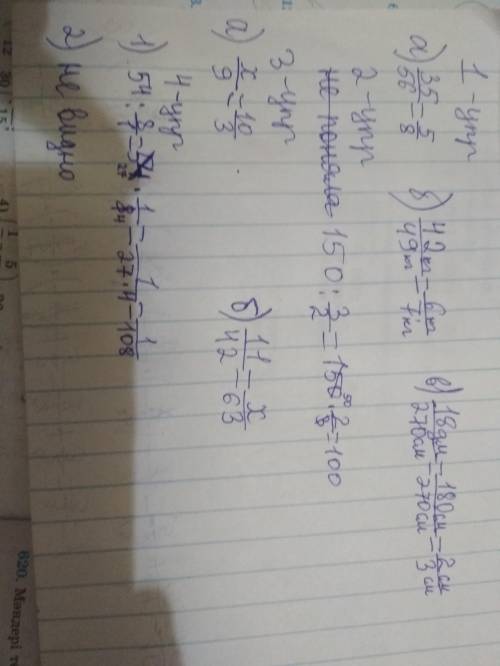 1-упр
а) 35/56 = 5/8 б) 42кг/49кг = 6кг/7кг в) 18дм/270см = 180см/270см = 2см/3см
2-упр
не поняла 150 : 3/2 = 150 50 · 2/3 = 100
3-упр
а) x/9 = 10/3 б) 11/42 = x/63
4-упр
1) 54 : 8/1 = 54 27 · 1/84 = 1/27·4 = 1/108
2) не видно
620. Мәндері